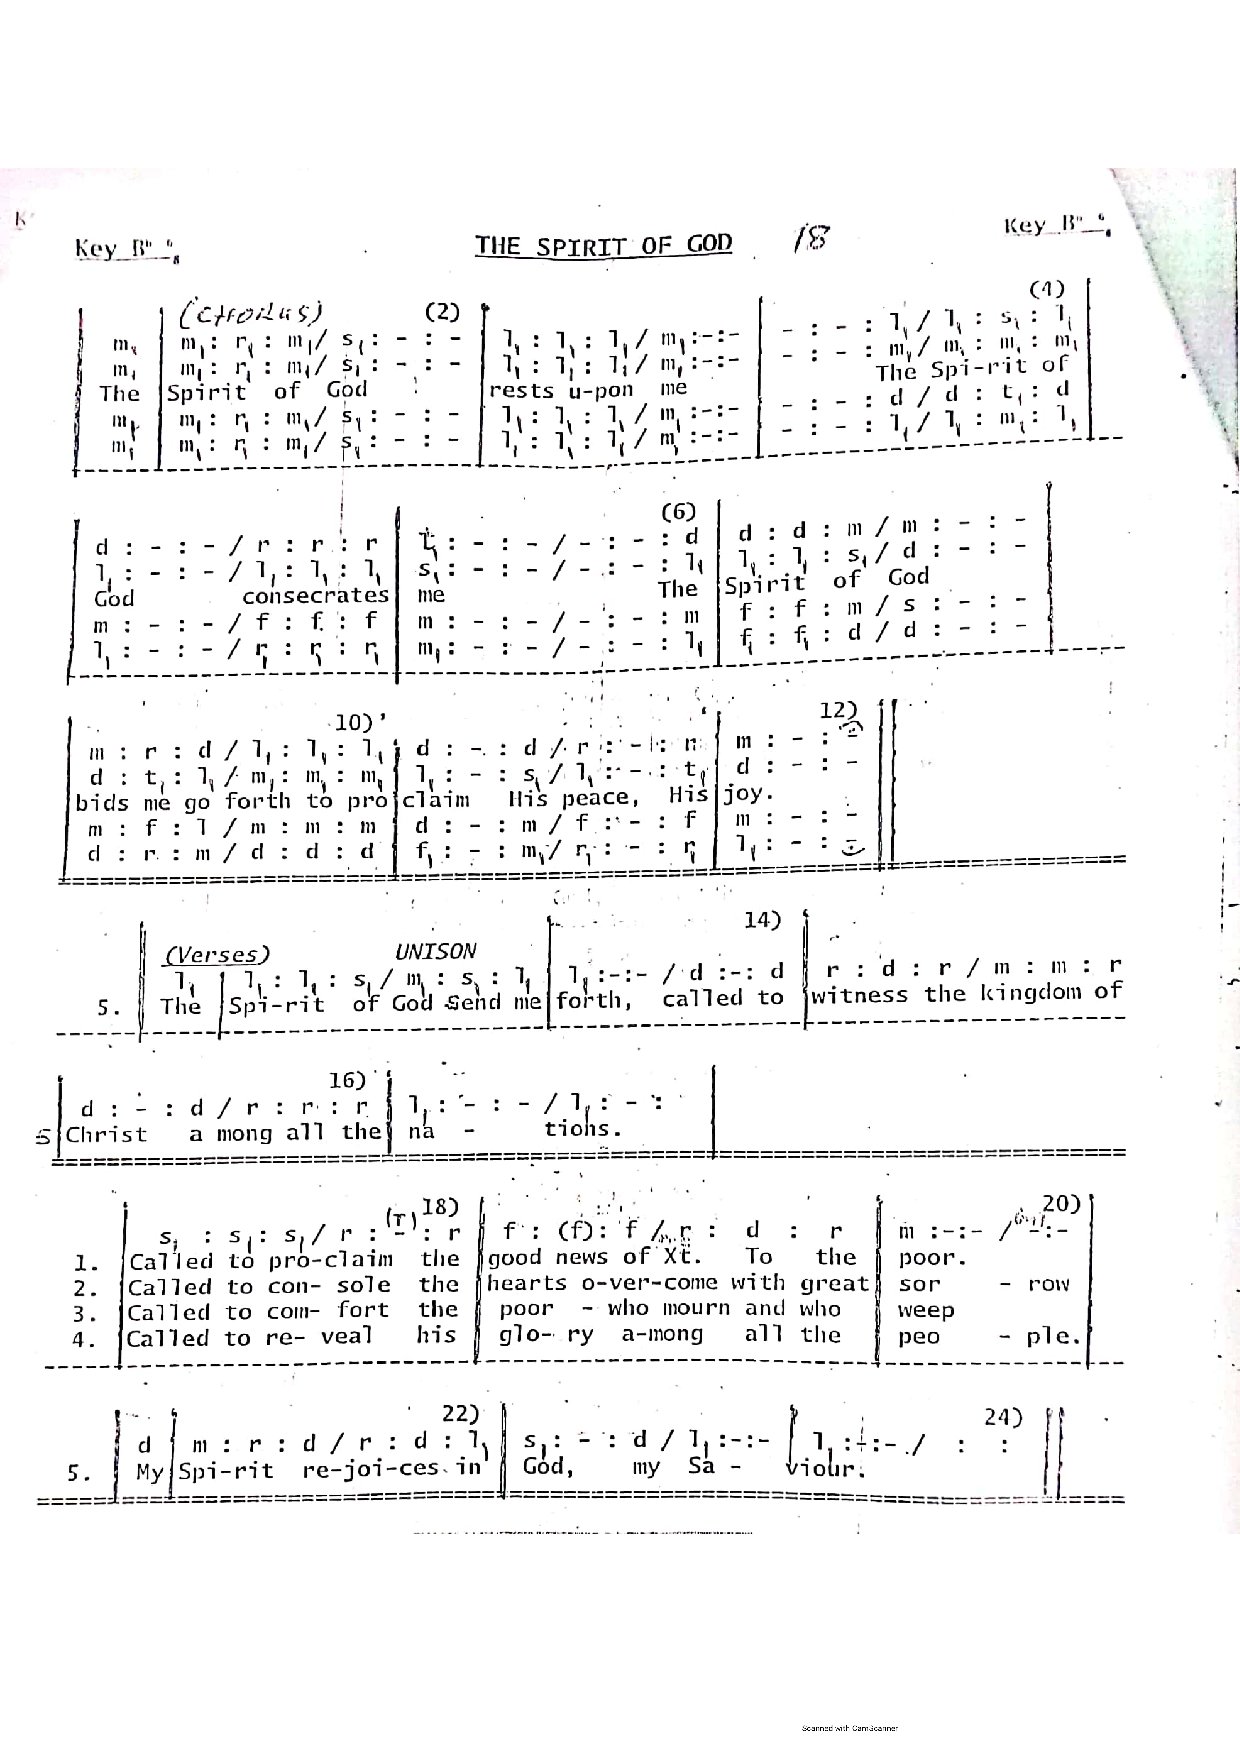 Key B"
THE SPIRIT OF GOD 18
Key B"
(CHORUS) (2) (4)
m₁ m₁ : r₁ : m₁ / s₁ : - : - l₁ : l₁ : l₁ / m₁ :-:- - : - : l₁ / l₁ : s₁ : l₁
m₁ m₁ : r₁ : m₁ / s₁ : - : - l₁ : l₁ : l₁ / m₁ :-:- - : - : m₁ / m₁ : m₁ : m₁
The Spirit of God rests u-pon me The Spi-rit of
m₁ m₁ : r₁ : m₁ / s₁ : - : - l₁ : l₁ : l₁ / m₁ :-:- - : - : d / d : t₁ : d
m₁ m₁ : r₁ : m₁ / s₁ : - : - l₁ : l₁ : l₁ / m₁ :-:- - : - : l₁ / l₁ : m₁ : l₁
(6)
d : - : - / r : r : r t₁ : - : - / - : - : d d : d : m / m : - : -
l₁ : - : - / l₁ : l₁ : l₁ s₁ : - : - / - : - : l₁ l₁ : l₁ : s₁ / d : - : -
God consecrates me The Spirit of God
m : - : - / f : f : f m : - : - / - : - : m f : f : m / s : - : -
l₁ : - : - / r₁ : r₁ : r₁ m₁ : - : - / - : - : l₁ f₁ : f₁ : d / d : - : -
10) 12)
m : r : d / l₁ : l₁ : l₁ d : - : d / r : - : r m : - : -
d : t₁ : l₁ / m₁ : m₁ : m₁ l₁ : - : s₁ / l₁ : - : t₁ d : - : -
bids me go forth to pro claim His peace, His joy.
m : f : l / m : m : m d : - : m / f : - : f m : - : -
d : r : m / d : d : d f₁ : - : m₁ / r₁ : - : r₁ l₁ : - : -
14)
(Verses) UNISON
l₁ l₁ : l₁ : s₁ / m₁ : s₁ : l₁ l₁ :-:- / d :-: d r : d : r / m : m : r
5. The Spi-rit of God Send me forth, called to witness the kingdom of
16)
d : - : d / r : r : r l₁ : - : - / l₁ : - :
5 Christ a mong all the na - tions.
18) 20)
s₁ : s₁ : s₁ / r : (T) - : r f : (f) : f / r : d : r m :-:- / -:-
1. Called to pro-claim the good news of Xt. To the poor.
2. Called to con- sole the hearts o-ver-come with great sor - row
3. Called to com- fort the poor - who mourn and who weep
4. Called to re- veal his glo- ry a-mong all the peo - ple.
22) 24)
d m : r : d / r : d : l₁ s₁ : - : d / l₁ :-:- l₁ :-:- / : :
5. My Spi-rit re-joi-ces in God, my Sa - viour.
Scanned with CamScanner